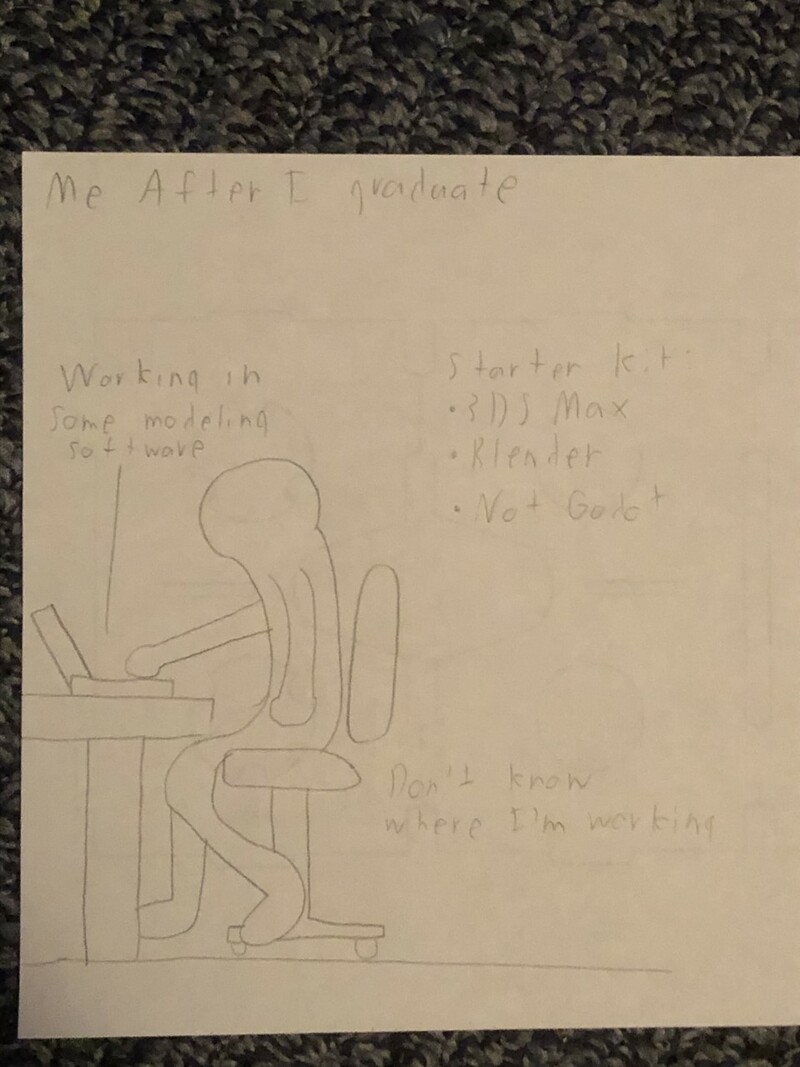 Me After I graduate
Working in
some modeling
software
Starter kit:
• 3DS Max
• Blender
• Not Godot
Don't know
where I'm working